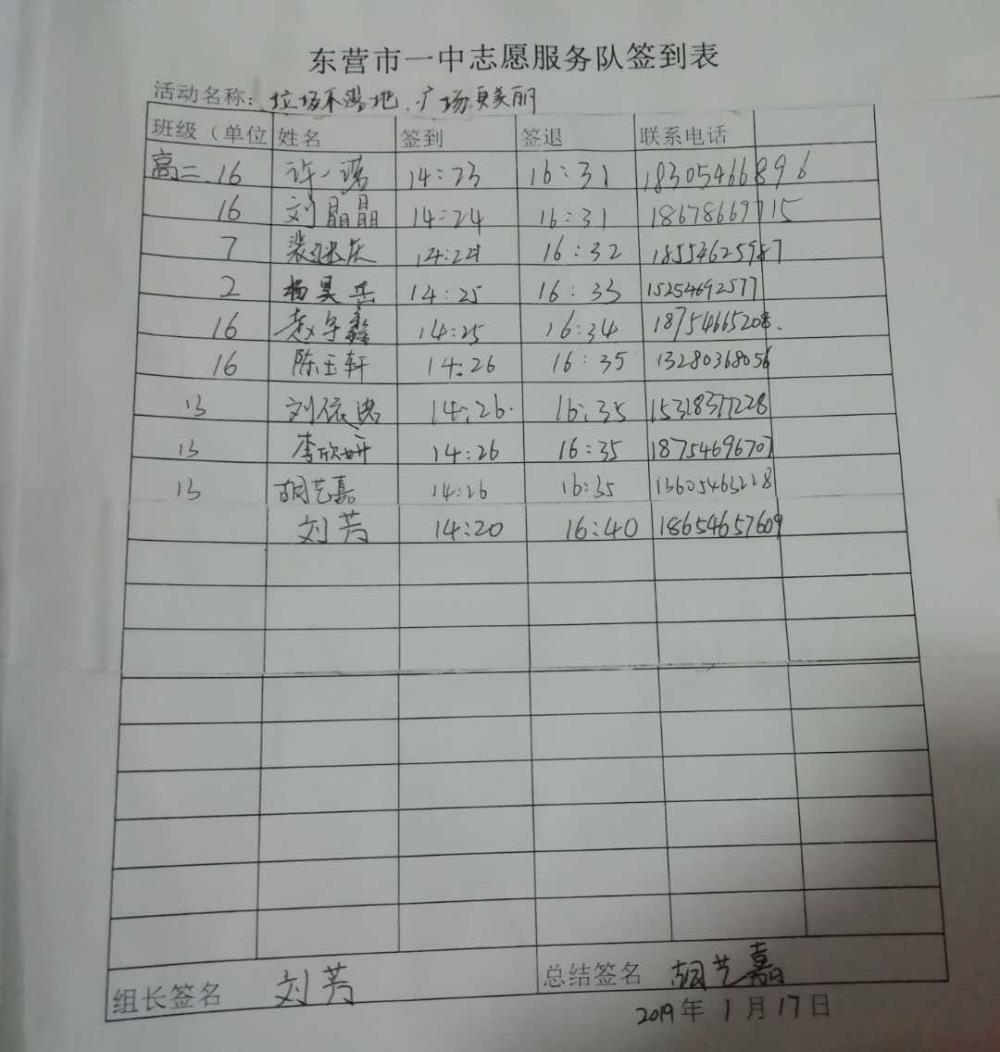 东营市一中志愿服务队签到表
活动名称：垃圾不落地、广场更美丽
班级（单位 姓名 签到 签退 联系电话
高二.16 许一诺 14:23 16:31 18305466896
16 刘晶晶 14:24 16:31 18678669715
7 14:24 16:32 18554625987
2 杨昊岳 14:25 16:33 15254692577
16 赵宇鑫 14:25 16:34 18754665208.
16 陈玉轩 14:26 16:35 13280368056
13 刘依诺 14:26. 16:35 15318377228
13 李欣妍 14:26 16:35 18754696707
13 胡艺嘉 14:26 16:35 13605463228
刘芳 14:20 16:40 18654657609
组长签名 刘芳 总结签名 胡艺嘉
2019年1月17日